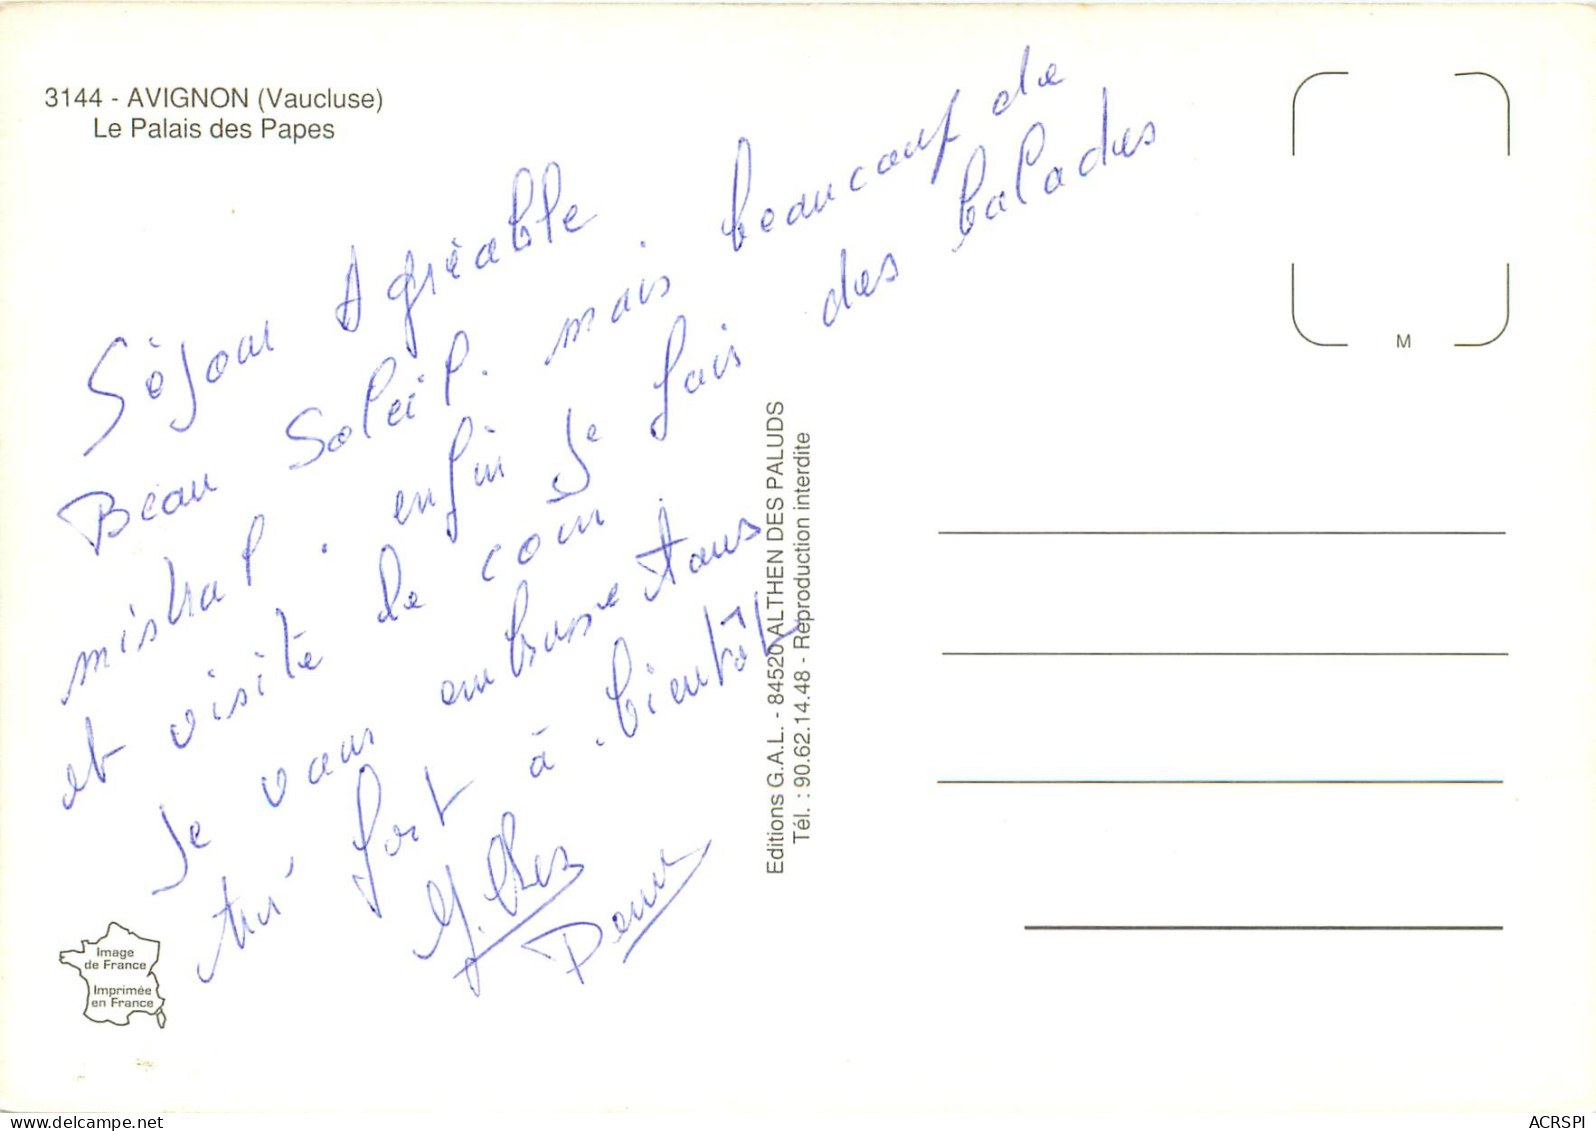 3144 - AVIGNON (Vaucluse)
Le Palais des Papes
Séjour Agréable
Beau Soleil. mais beaucoup de
mistral. enfin je fais des balades
et visite le coin.
Je vous embrasse tous
très fort à bientôt
Editions G.A.L. - 84520 ALTHEN DES PALUDS
Tél. : 90.62.14.48 - Reproduction interdite
M
Image
de France
Imprimée
en France
ACRSPI